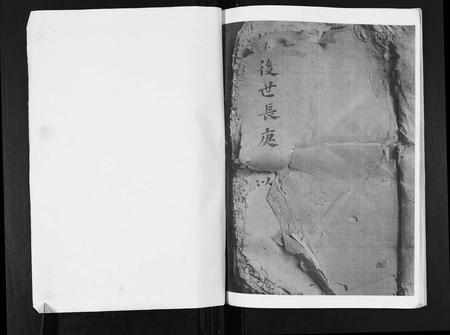 後世長庭
以